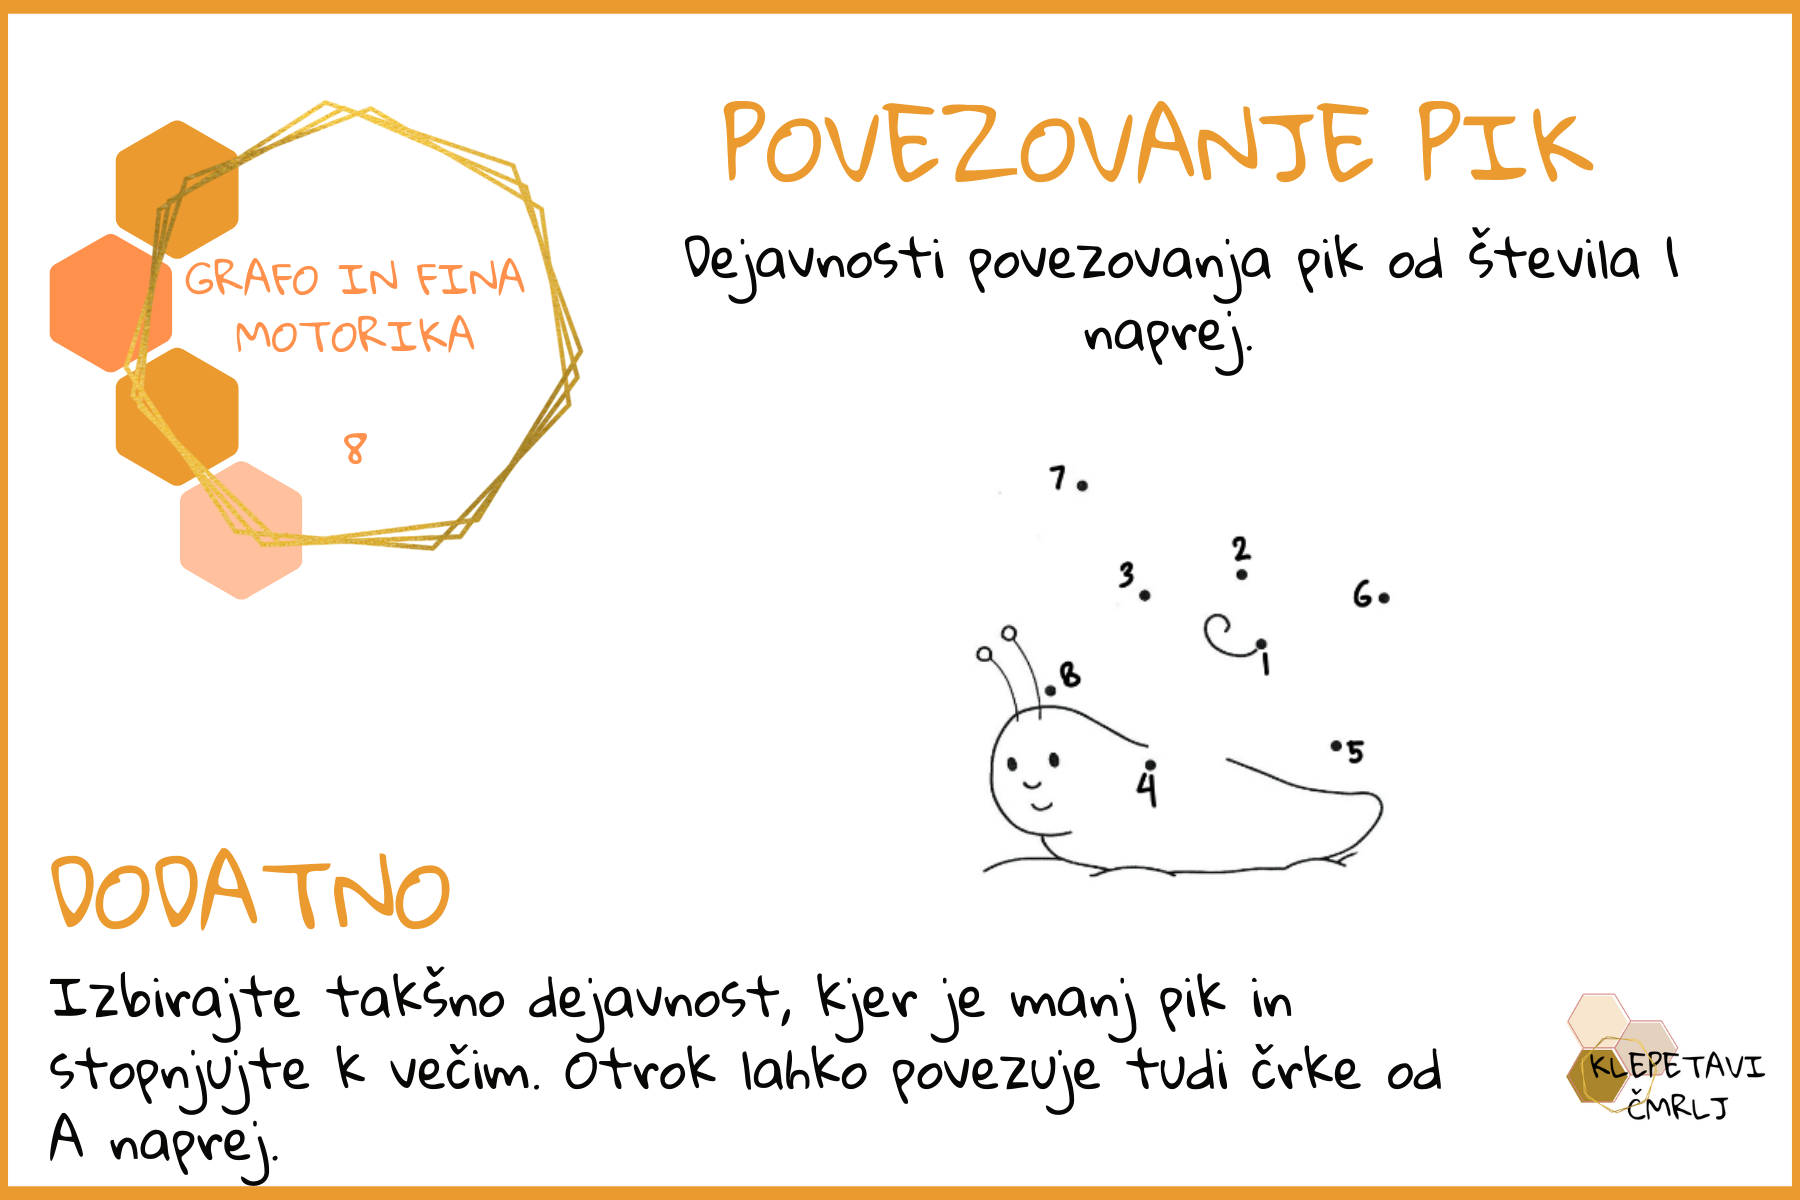 POVEZOVANJE PIK
Dejavnosti povezovanja pik od števila 1
naprej.
GRAFO IN FINA
MOTORIKA
8
7
2
3
6
1
8
5
4
DODATNO
Izbirajte takšno dejavnost, kjer je manj pik in
stopnjujte k večim. Otrok lahko povezuje tudi črke od
A naprej.
KLEPETAVI
ČMRLJ